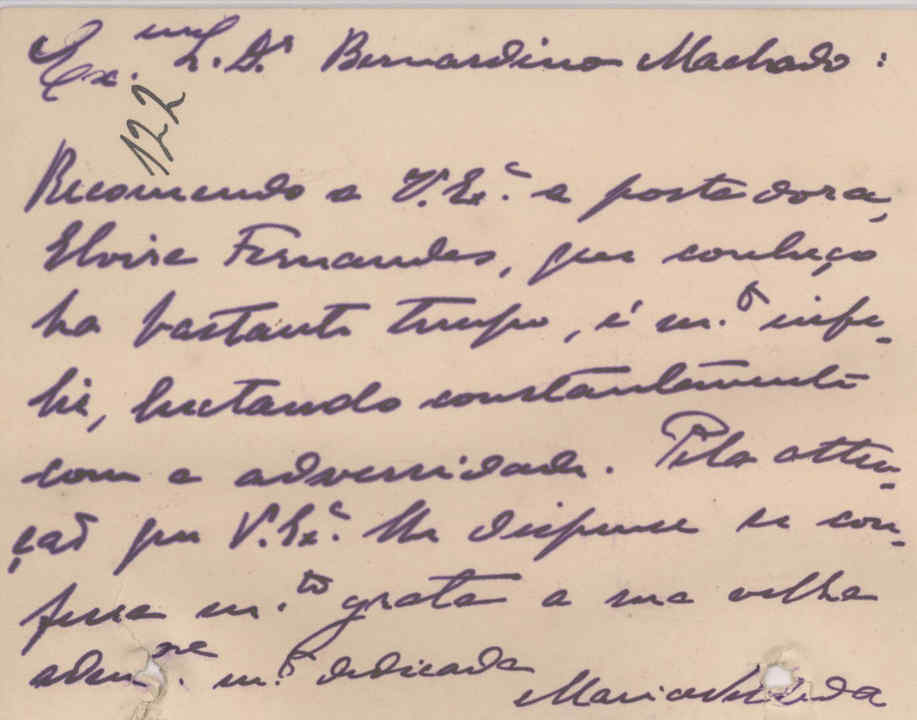 Ex.mo Sr. Dr. Bernardino Machado:
122
Recomendo a V. Ex.ª a portadora,
Elvira Fernandes, que conheço
ha bastante tempo, é m.to infe-
liz, luctando constantemente
com a adversidade. Pela atten-
ção que V. Ex.ª lhe dispense se con-
fessa m.to grata a sua velha
adm.ra m.to dedicada
Maria